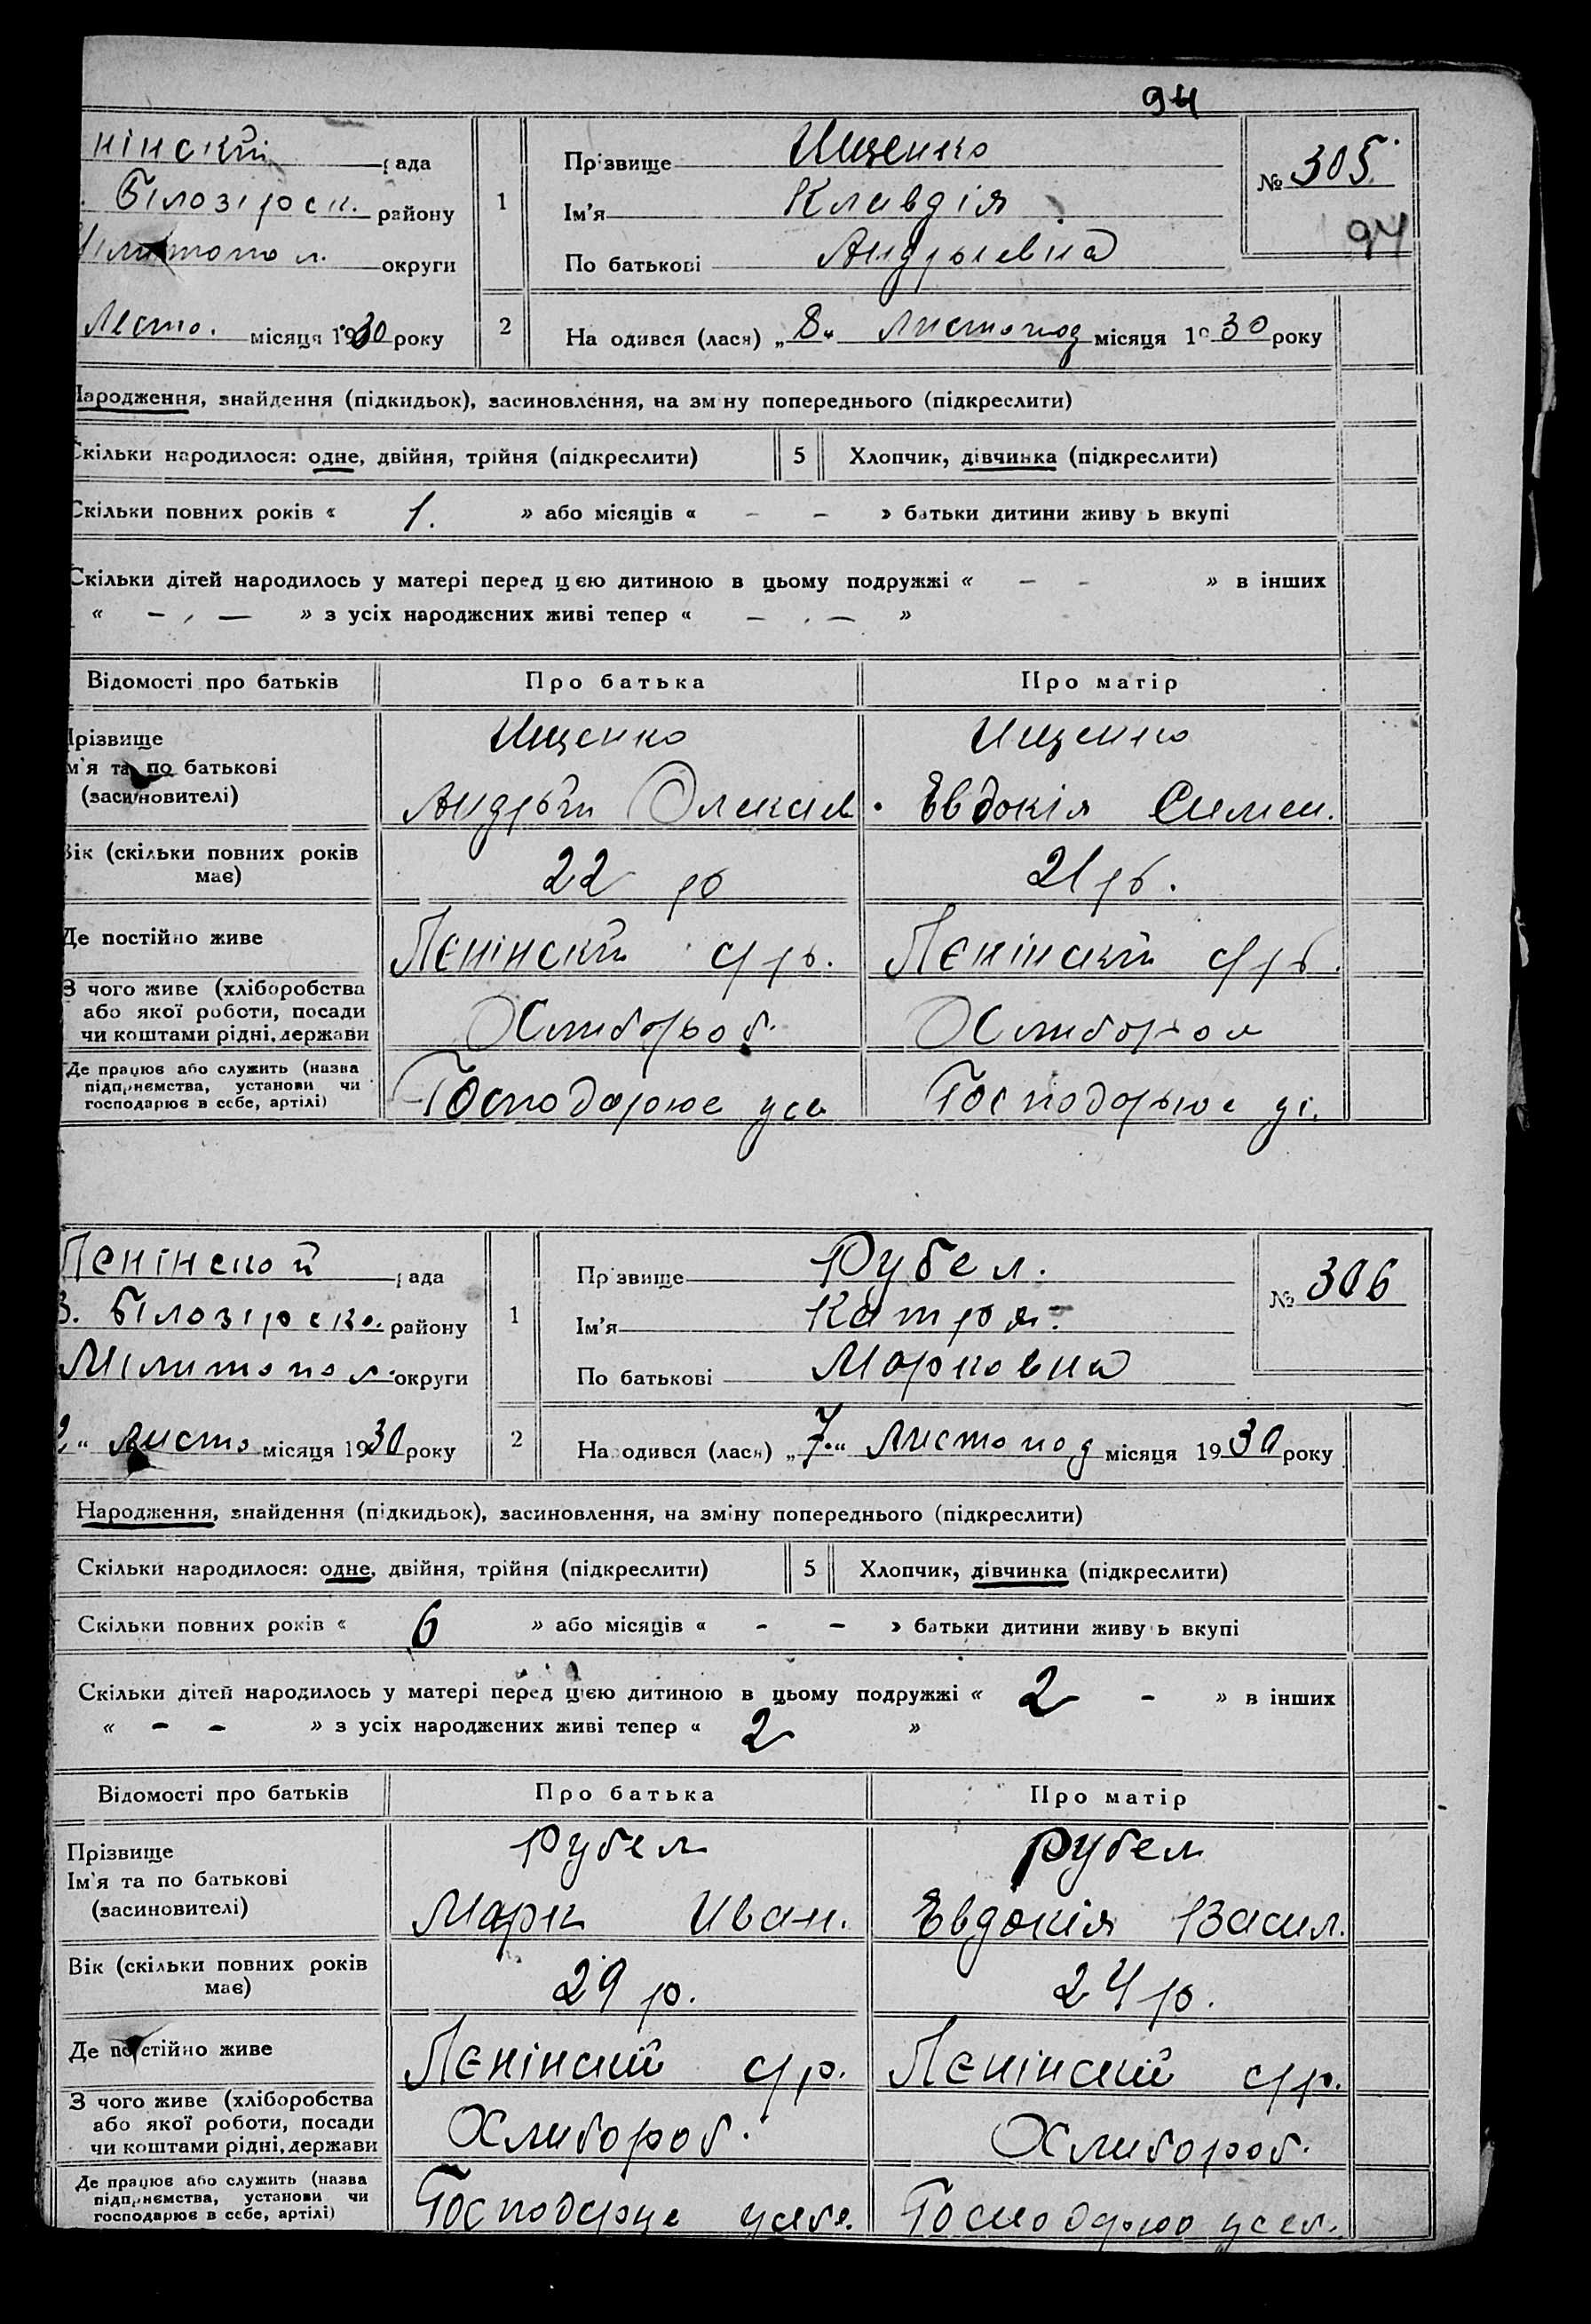 94
нінский рада
Білозірск. району
округи
Листо. місяця 1930 року
1 Прізвище Ищенко
Ім'я Клавдія
По батькові Андрыевна
№ 305.
94
2 На одився (лася) „8“ Листопод місяця 1930 року
Народження, знайдення (підкидьок), засиновлення, на зміну попереднього (підкреслити)
Скільки народилося: одне, двійня, трійня (підкреслити) 5 Хлопчик, дівчинка (підкреслити)
Скільки повних років « 1. » або місяців « - - » батьки дитини живу ь вкупі
Скільки дітей народилось у матері перед цією дитиною в цьому подружжі « - - » в інших
« - , — » з усіх народжених живі тепер « — . — »
Відомості про батьків Про батька Про матір
Прізвище Ищенко Ищенко
м'я та по батькові
(засиновителі) Андрый Олексиев. Евдокія Симен.
Вік (скільки повних років
має) 22 р 21 р.
Де постійно живе Ленінский с/р. Ленінский с/р.
З чого живе (хліборобства
або якої роботи, посади
чи коштами рідні, держави Хлибороб. Хлибороб
Де працює або служить (назва
підприємства, установи чи
господарює в себе, артілі) Господорюе усе Господорюе
Ленінской рада
В. Білозірско. району
Мілитопол. округи
2“ Листо місяця 1930 року
1 Прізвище Рубел.
Ім'я Катря.
По батькові Марковна
№ 306
2 На одився (лася) „7.“ Листопод місяця 1930 року
Народження, знайдення (підкидьок), засиновлення, на зміну попереднього (підкреслити)
Скільки народилося: одне, двійня, трійня (підкреслити) 5 Хлопчик, дівчинка (підкреслити)
Скільки повних років « 6 » або місяців « - - » батьки дитини живу ь вкупі
Скільки дітей народилось у матері перед цією дитиною в цьому подружжі « 2 - » в інших
« - - » з усіх народжених живі тепер « 2 »
Відомості про батьків Про батька Про матір
Прізвище Рубел Рубел
Ім'я та по батькові
(засиновителі) Марк Иван. Евдокія Васил.
Вік (скільки повних років
має) 29 р. 24 р.
Де постійно живе Ленінский с/р. Ленінский с/р.
З чого живе (хліборобства
або якої роботи, посади
чи коштами рідні, держави Хлибороб. Хлибороб.
Де працює або служить (назва
підприємства, установи чи
господарює в себе, артілі) усеб.